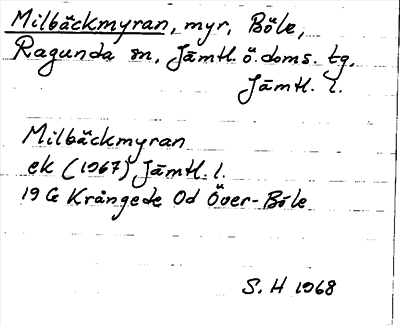 Milbäckmyran, myr, Böle,
Ragunda sn, Jämtl. ö. doms. tg,
Jämtl. l.
Milbäckmyran
ek (1967) Jämtl. l.
19 G Krångede Od Över-Böle
S. H 1968